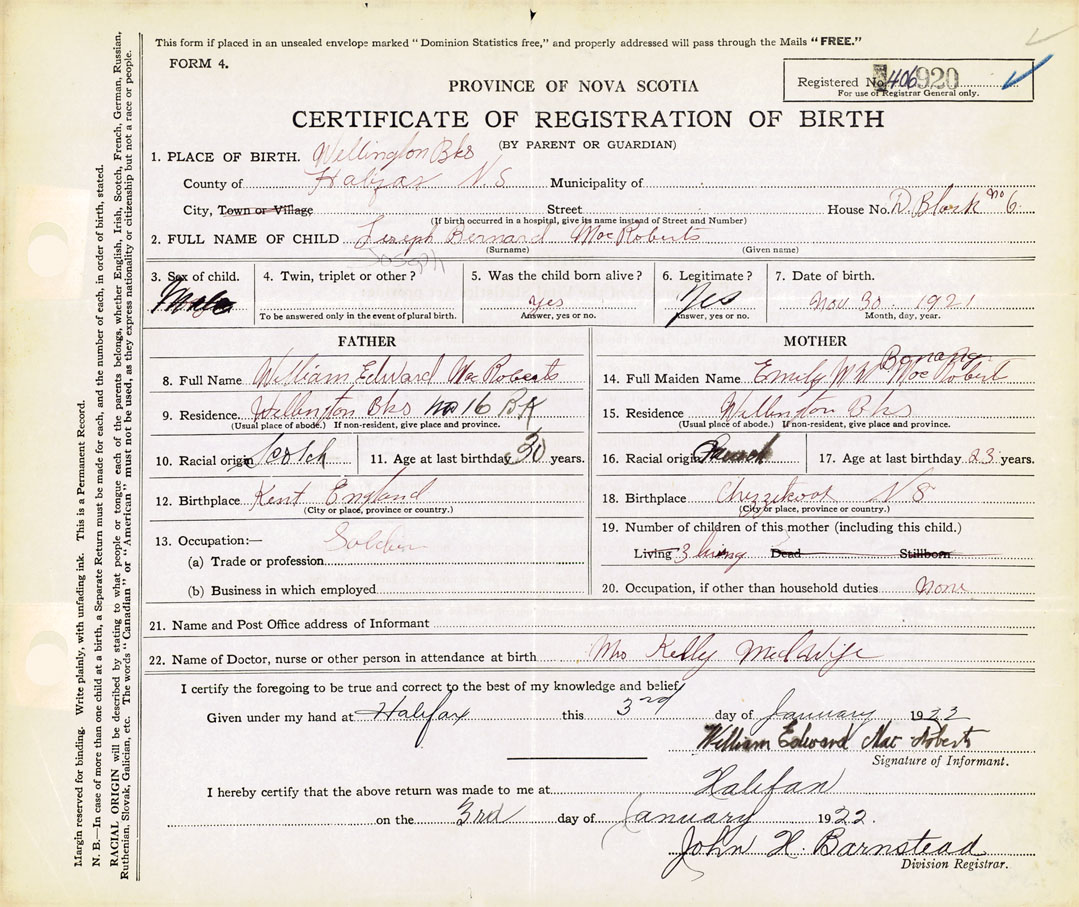 This form if placed in an unsealed envelope marked "Dominion Statistics free," and properly addressed will pass through the Mails "FREE."
FORM 4.
PROVINCE OF NOVA SCOTIA
Registered No. 406920
For use of Registrar General only.
CERTIFICATE OF REGISTRATION OF BIRTH
(BY PARENT OR GUARDIAN)
1. PLACE OF BIRTH. Wellington Bks
County of Halifax N.S Municipality of
City, Town or Village Street House No. D. Block No 6.
(If birth occurred in a hospital, give its name instead of Street and Number)
2. FULL NAME OF CHILD Joseph Bernard MacRoberts
(Surname) (Given name)
Joseph
3. Sex of child. 4. Twin, triplet or other? 5. Was the child born alive? 6. Legitimate? 7. Date of birth.
Male yes Yes Nov 30. 1921
To be answered only in the event of plural birth. Answer, yes or no. Answer, yes or no. Month, day, year.
FATHER MOTHER
8. Full Name William Edward MacRoberts
9. Residence. Wellington Bks No 16 BK
(Usual place of abode.) If non-resident, give place and province.
10. Racial origin Scotch 11. Age at last birthday 30 years.
12. Birthplace Kent England
(City or place, province or country.)
13. Occupation:— Soldier
(a) Trade or profession
(b) Business in which employed
Bonang
14. Full Maiden Name Emily W. MacRobert
15. Residence Wellington Bks
(Usual place of abode.) If non-resident, give place and province.
16. Racial origin 17. Age at last birthday 23 years.
18. Birthplace Chezzetcook N S
(City or place, province or country.)
19. Number of children of this mother (including this child.)
Living 3 living Dead Stillborn
20. Occupation, if other than household duties None
21. Name and Post Office address of Informant
22. Name of Doctor, nurse or other person in attendance at birth Mrs Kelly Midwife
I certify the foregoing to be true and correct to the best of my knowledge and belief
Given under my hand at Halifax this 3rd day of January 1922
William Edward Mac Roberts
Signature of Informant.
I hereby certify that the above return was made to me at Halifax
on the 3rd day of January 1922.
John H. Barnstead
Division Registrar.
Margin reserved for binding. Write plainly, with unfading ink. This is a Permanent Record.
N. B.—In case of more than one child at a birth, a Separate Return must be made for each, and the number of each, in order of birth, stated.
RACIAL ORIGIN will be described by stating to what people or tongue each of the parents belongs, whether English, Irish, Scotch, French, German, Russian,
Ruthenian, Slovak, Galician, etc. The words "Canadian" or "American" must not be used, as they express nationality or citizenship but not a race or people.